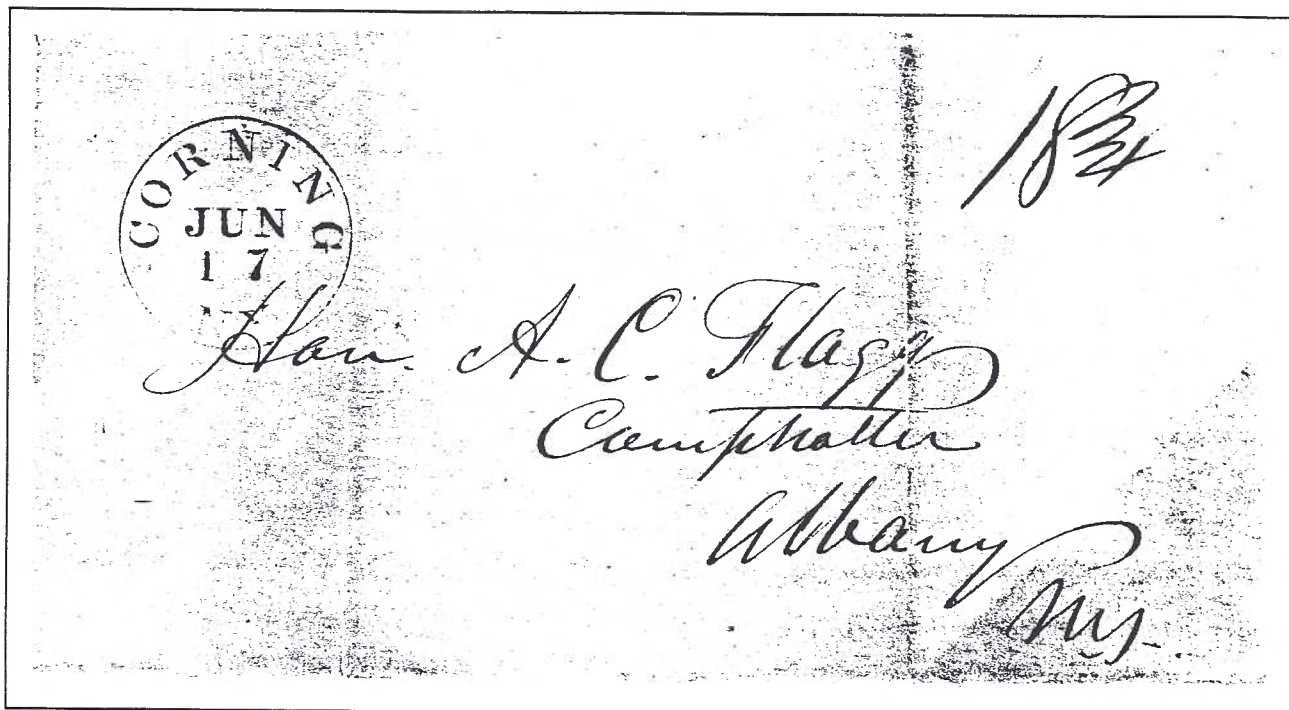 CORNING
JUN
17
18 3/4
Hon. A. C. Flagg
Comptroller
Albany
N.Y.